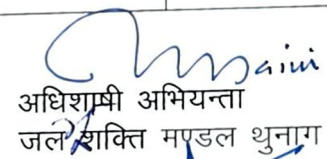 अधिशाषी अभियन्ता
जल शक्ति मण्डल थुनाग